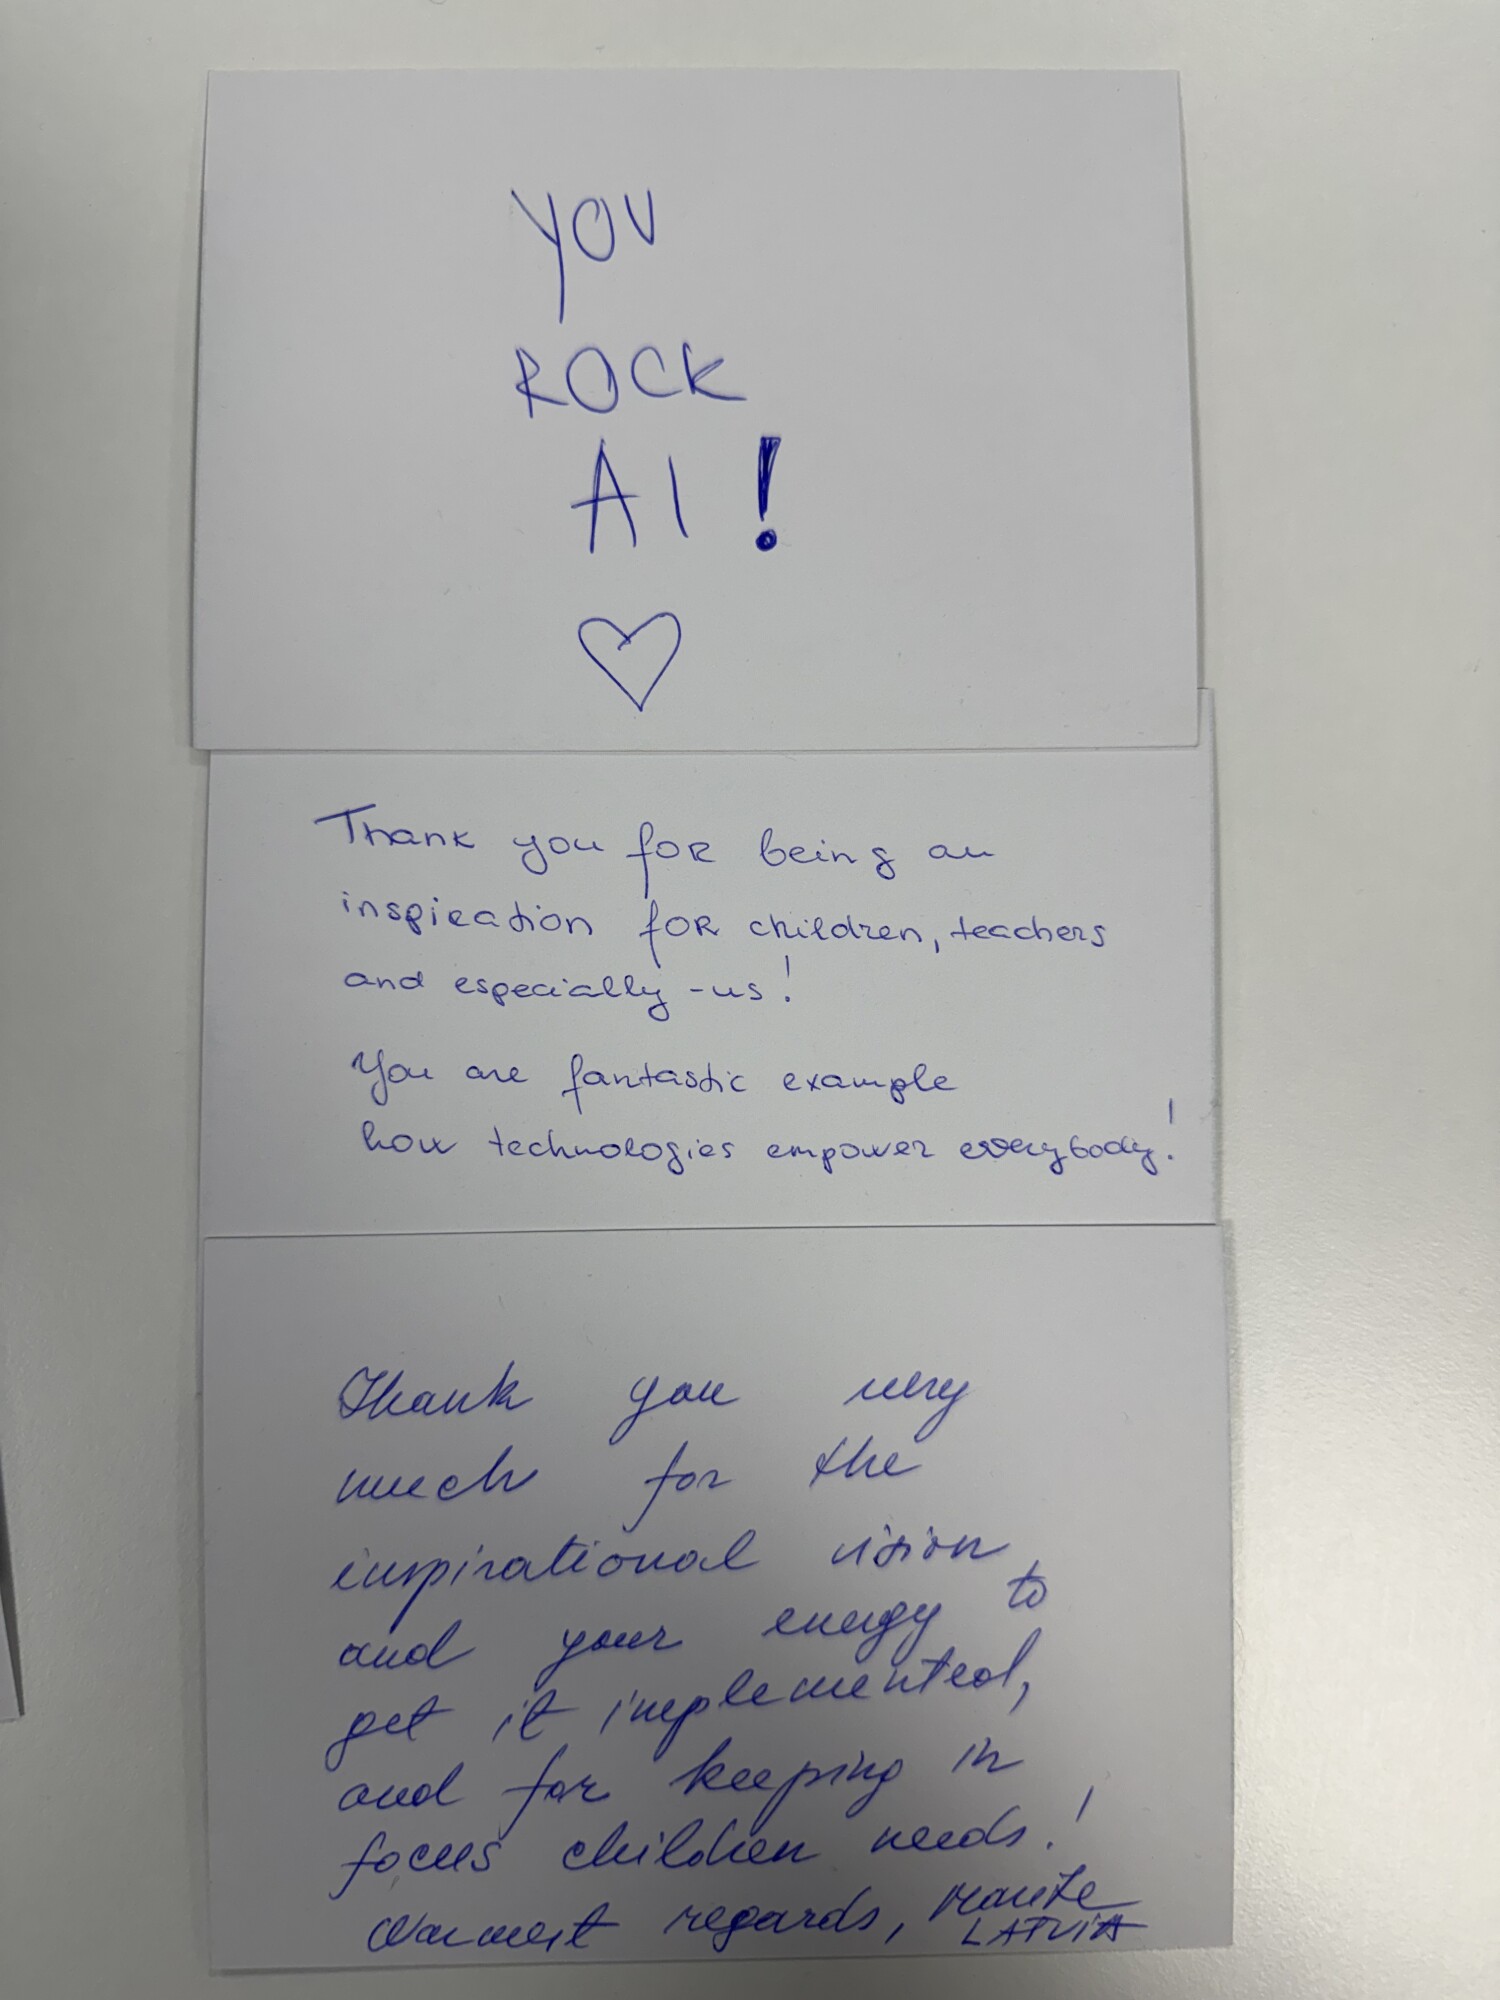 YOU
ROCK
AI!
Thank you for being an
inspiration for children, teachers
and especially - us!
You are fantastic example
how technologies empower everybody!
Thank you very
much for the
inspirational vision
and your energy to
get it implemented,
and for keeping in
focus children needs!
Warmest regards,
LATVIA